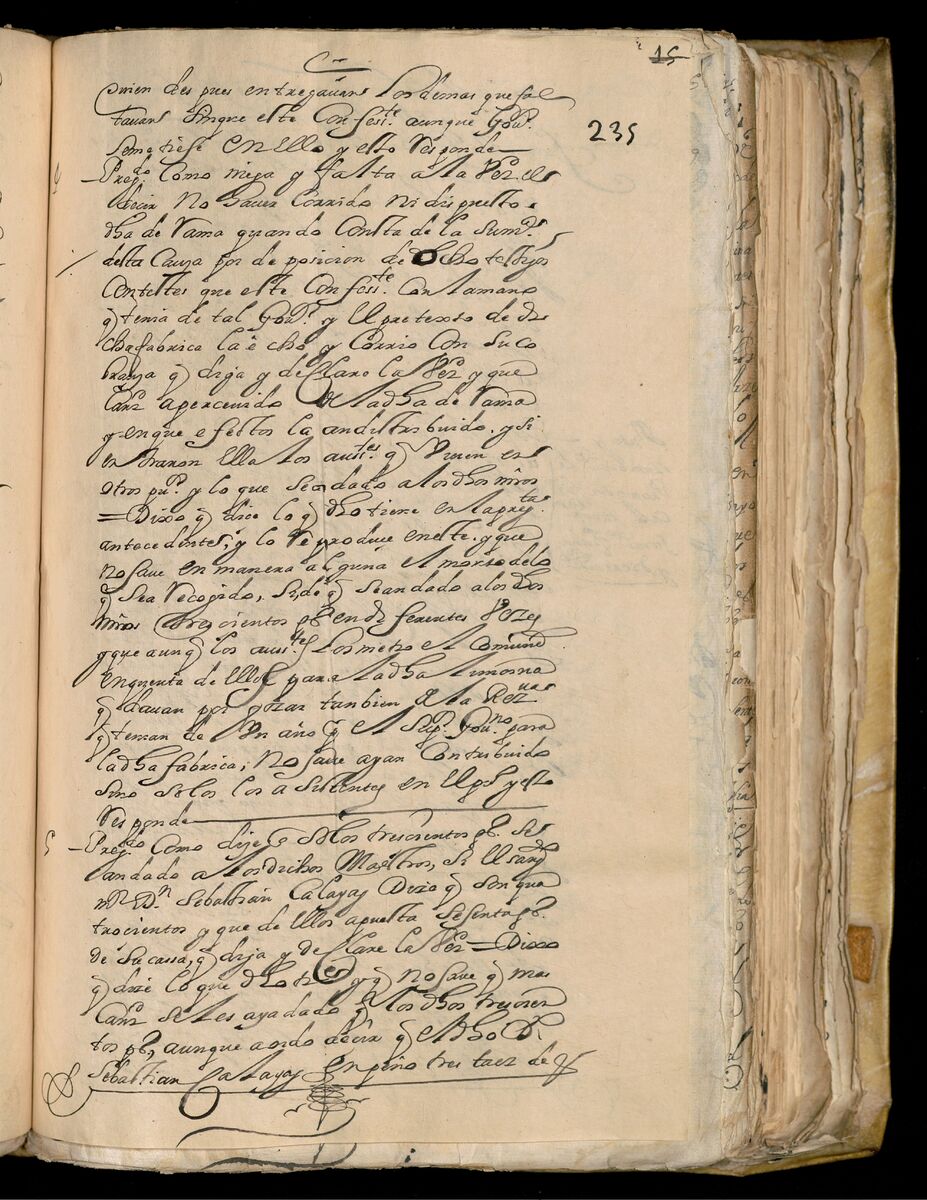 15
235
quien despues entregavan los demas que fal
tavan sin que este Confes.te aunque Gov.r
se metiese en ello y esto Responde
Preg.do Como niega y falta a la Verd
decir No haver Corrido Ni dispuesto
dha de Rama quando Consta de la Sum.a
desta Causa por de posicion de Ocho testigos
Contestes que este Confes.te Con la mano
q tenia de tal Gov.r y el pretexto de di
cha fabrica la echo y Corrio Con su co
branza q diga y declare la Verd y que
Cant apercevido de la dha de Rama
y en que efectos la an distribuido, y si
entraron en ella los aus.tes q Viven en
otros pu.s y lo que se a dado a los dhos mros
= Dixo q dice lo q dho tiene en la preg.ta
antecedente, y lo Reproduce en este, y que
no save en manera alguna el monto de lo
q sea Recogido, si, de q se an dado a los dhos
mros trescientos p.s en diferentes Vezes
y que aunq los aus.tes los metio el Comun
en quenta de ellos para la dha limosna
q davan por gozar tambien de la
q tenian de Un año q el Sup.r Gov.no para
la dha fabrica, No save ayan Contribuido
sino solos los asistentes en el p.o y esto
Responde
Preg.do Como dize q solos trescientos p.s se
an dado a los dichos Maestros, si el
D.n Sebastian Calayag Dixo q son qua
trocientos y que de ellos a puesta sesenta p.s
de su casa, q diga y declare la Verd = Dixo
q dize lo que dho tiene y q no save q mas
Cant se les aya dado q los dhos trescien
tos p.s, aunque a oido decir q el dho D.n
Sebastian Calayag enpeño tres taez de